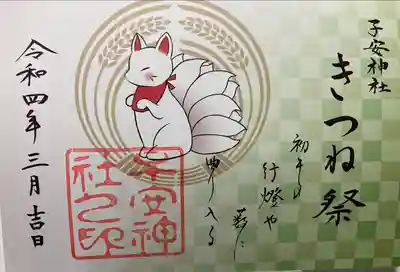 子安神社
きつね祭
初午の
行燈や
藪に
曲り入る
子安神
社之印
令和四年三月吉日